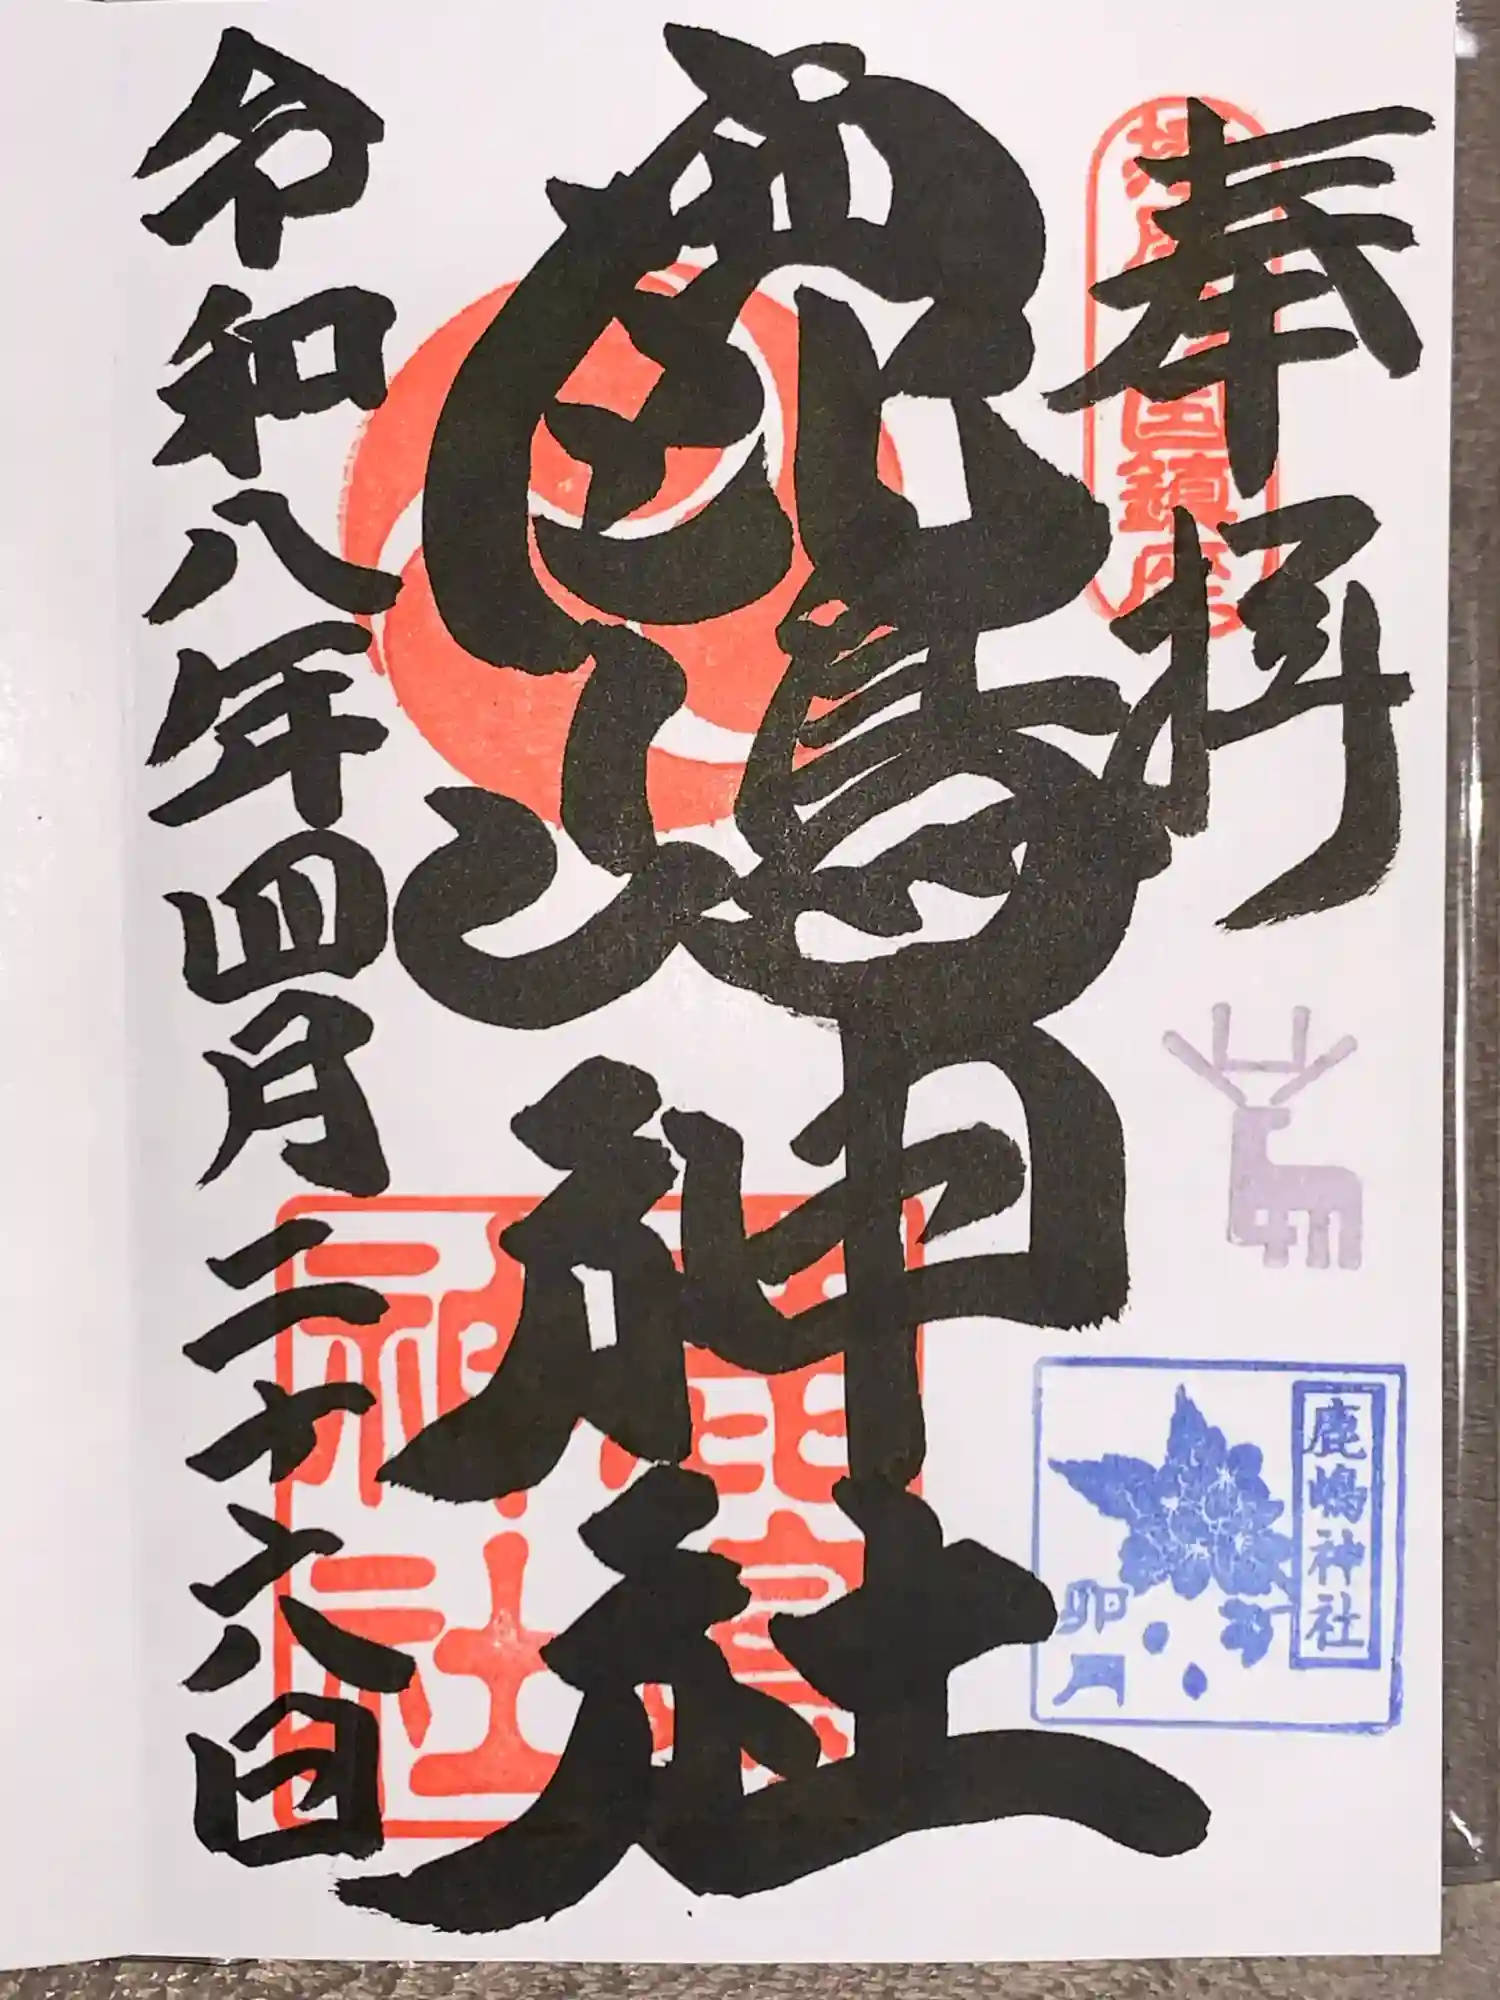 奉拝
鹿嶋神社
令和八年四月二十六日
鹿嶋神社
卯月
鹿嶋
神社